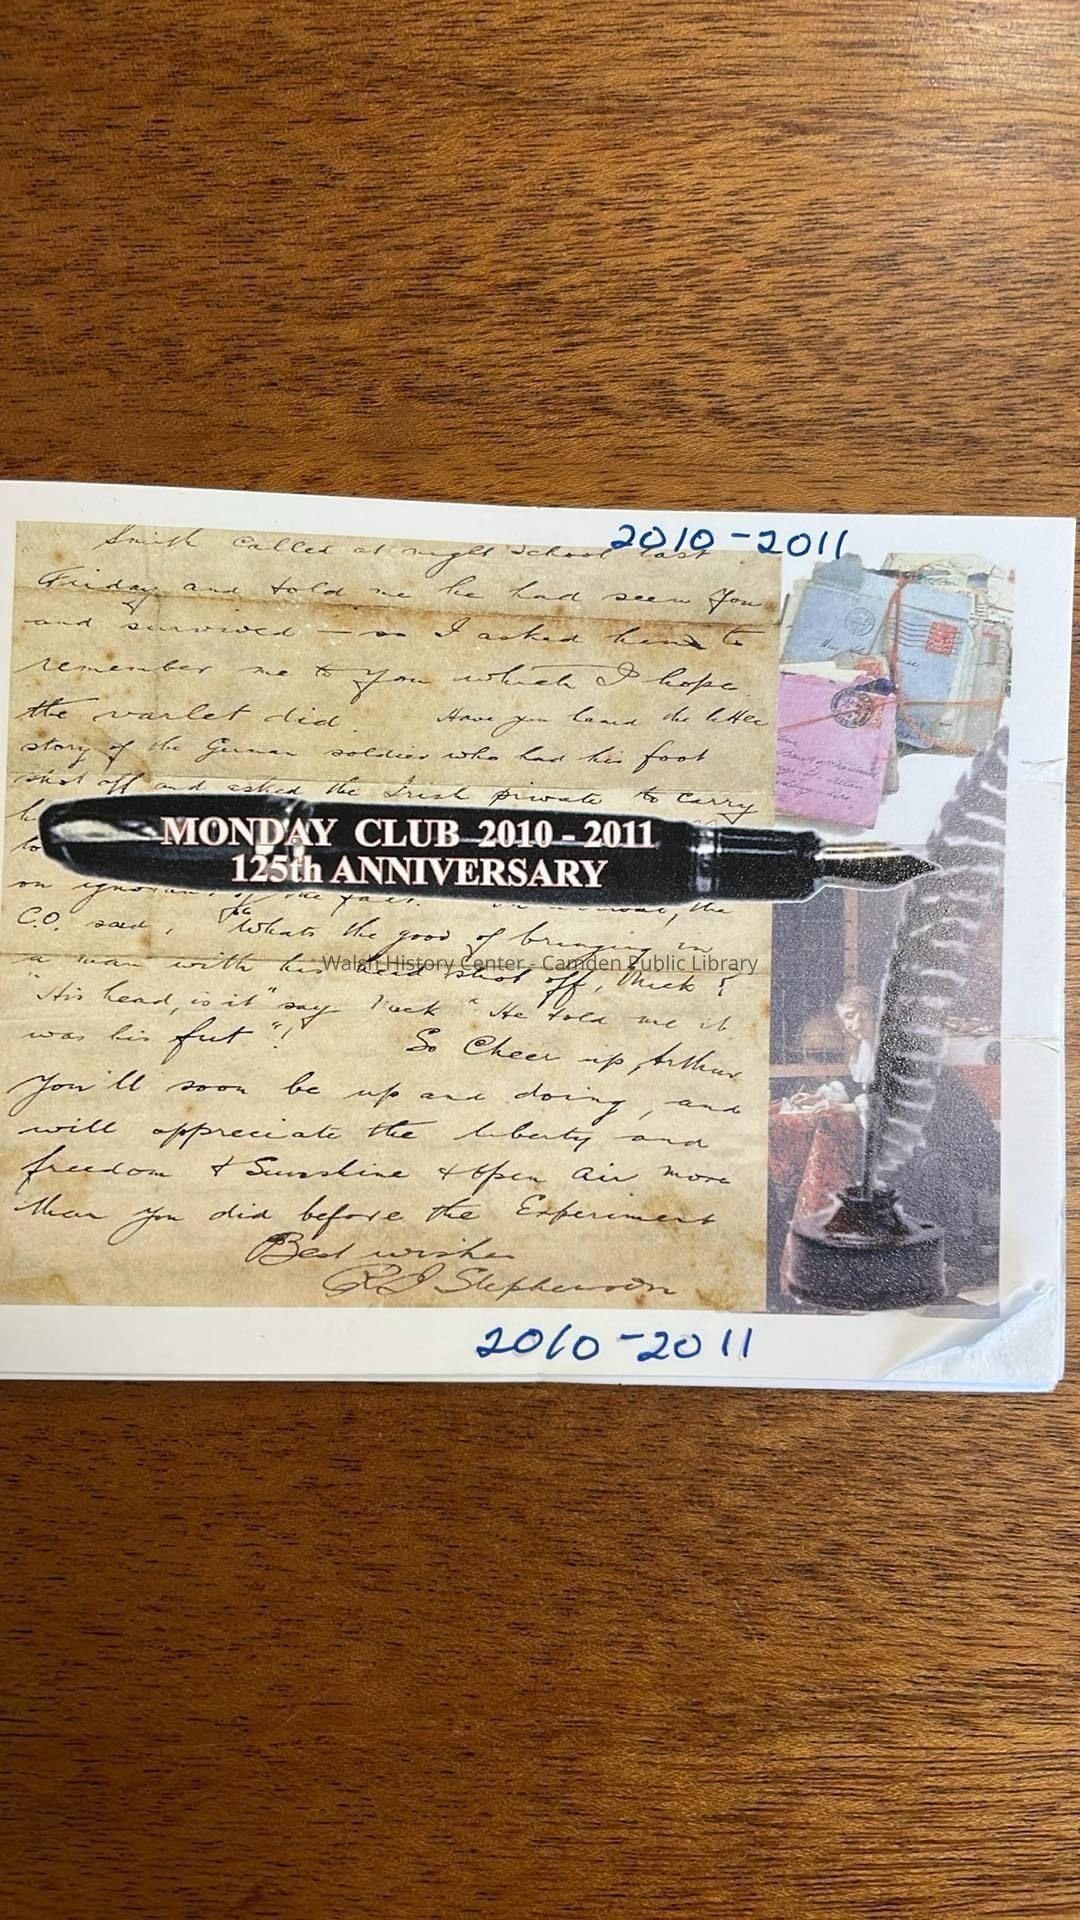 2010-2011
Smith called at night school last
Friday and told me he had seen you
and survived — so I asked him to
remember me to you which I hope
the varlet did Have you heard the little
story of the German soldier who had his foot
shot off and asked the Irish private to carry
MONDAY CLUB 2010 - 2011
125th ANNIVERSARY
on of the fact. the
C.O. said, "Whats the good of bringing in
a man with his head shot off, Mick?
Walsh History Center - Camden Public Library
"His head, is it" say Mick "He told me it
was his fut"! So Cheer up, Arthur
you'll soon be up and doing, and
will appreciate the liberty and
freedom & Sunshine & open air more
than you did before the Experiment
Best wishes
R J Stephenson
2010-2011